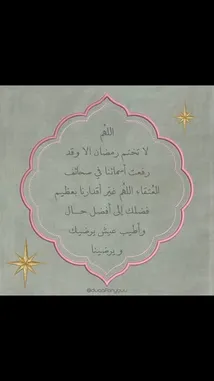 اللهم
لا تختم رمضان الا وقد
رفعت أسمائنا في صحائف
العتقاء اللهم غير أقدارنا بعظيم
فضلك إلى أفضل حال
وأطيب عيش يرضيك
ويرضينا